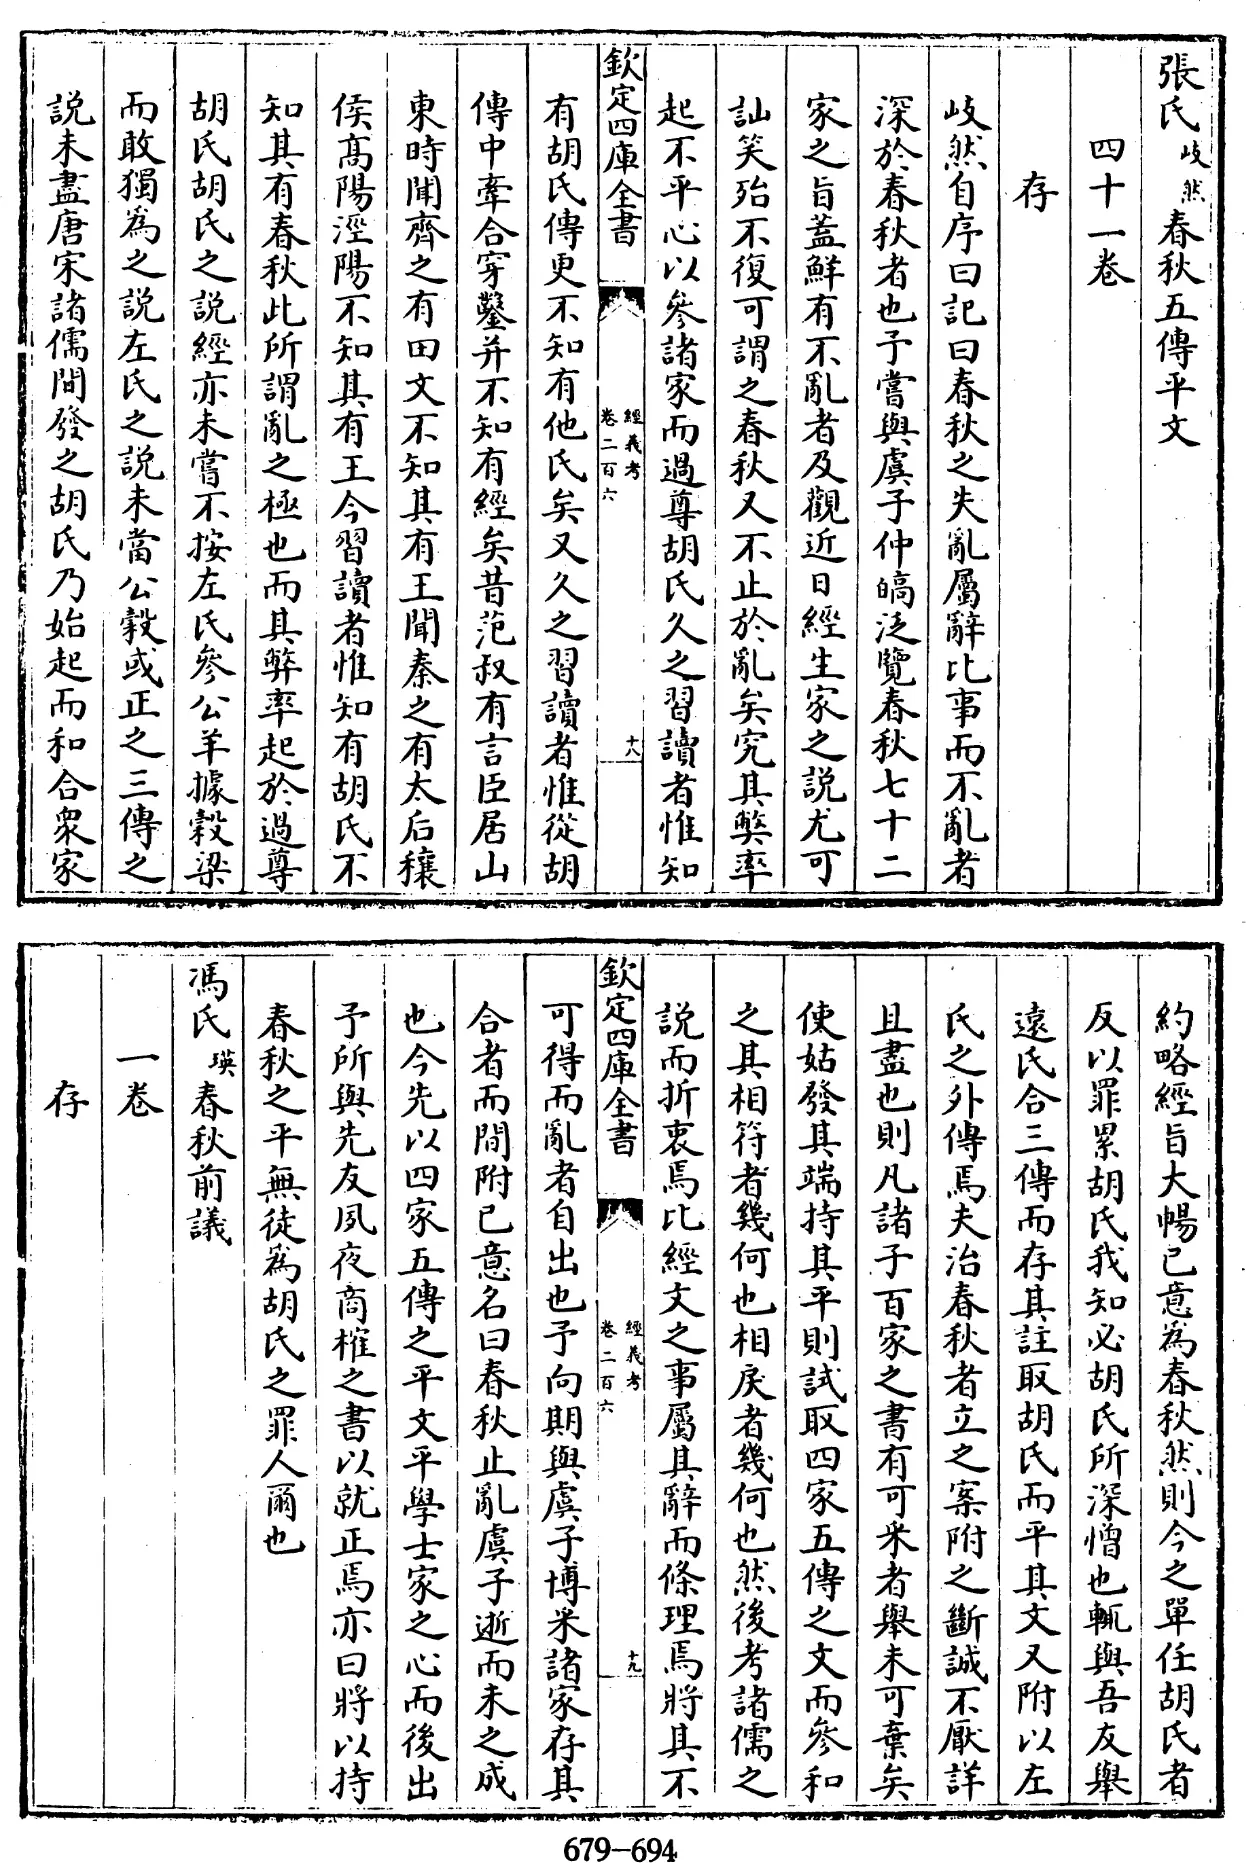 張氏岐然春秋五傳平文
四十一卷
存
岐然自序曰記曰春秋之失亂屬辭比事而不亂者
深於春秋者也予嘗與虞子仲皜泛覽春秋七十二
家之旨蓋鮮有不亂者及觀近日經生家之說尤可
訕笑殆不復可謂之春秋又不止於亂矣究其弊率
起不平心以參諸家而過尊胡氏久之習讀者惟知
欽定四庫全書
經義考
卷二百六
十八
有胡氏傳更不知有他氏矣又久之習讀者惟從胡
傳中牽合穿鑿并不知有經矣昔范叔有言臣居山
東時聞齊之有田文不知其有王聞秦之有太后穰
侯高陽涇陽不知其有王今習讀者惟知有胡氏不
知其有春秋此所謂亂之極也而其弊率起於過尊
胡氏胡氏之說經亦未嘗不按左氏參公羊據穀梁
而敢獨為之說左氏之說未當公穀或正之三傳之
說未盡唐宋諸儒間發之胡氏乃始起而和合衆家
約略經旨大暢已意為春秋然則今之單任胡氏者
反以罪累胡氏我知必胡氏所深憎也輒與吾友舉
遠氏合三傳而存其註取胡氏而平其文又附以左
氏之外傳焉夫治春秋者立之案附之斷誠不厭詳
且盡也則凡諸子百家之書有可采者舉未可棄矣
使姑發其端持其平則試取四家五傳之文而參和
之其相符者幾何也相戾者幾何也然後考諸儒之
說而折衷焉比經文之事屬其辭而條理焉將其不
欽定四庫全書
經義考
卷二百六
十九
可得而亂者自出也予向期與虞子博采諸家存其
合者而間附已意名曰春秋止亂虞子逝而未之成
也今先以四家五傳之平文平學士家之心而後出
予所與先友夙夜商榷之書以就正焉亦曰將以持
春秋之平無徒為胡氏之罪人爾也
馮氏瑛春秋前議
一卷
存
679-694